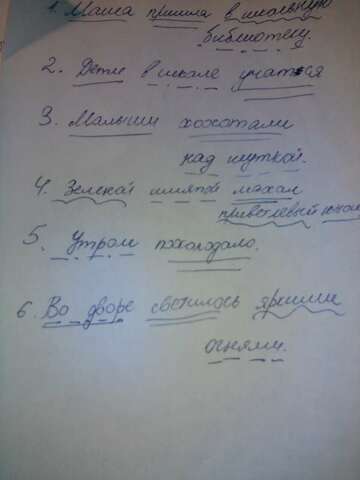 1. Маша пришла в школьную
библиотеку.
2. Дети в школе учатся
3. Малыши хохотали
над шуткой.
4. Зеленой шляпой махал
приветливый
5. Утром похолодало.
6. Во дворе светилось яркими
огнями.